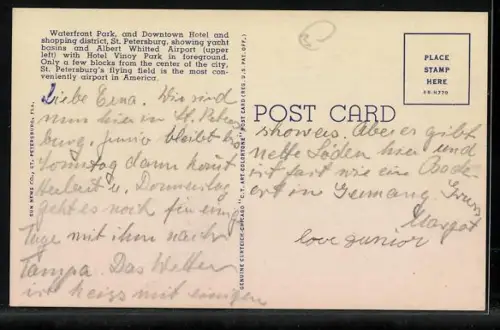 Waterfront Park, and Downtown Hotel and
shopping district, St. Petersburg, showing yacht
basins and Albert Whitted Airport (upper
left) with Hotel Vinoy Park in foreground.
Only a few blocks from the center of the city,
St. Petersburg's flying field is the most con-
veniently airport in America.
Liebe Erna. Wir sind
nun hier in St. Peters
burg, Junior bleibt bis
Sonntag dann kommt
Herbert u. Donnerstag
geht es noch für einige
Tage mit ihm nach
Tampa. Das Wetter
ist heiss mit einigen
SUN NEWS CO., ST. PETERSBURG, FLA.
GENUINE CURTEICH-CHICAGO "C.T. ART-COLORTONE" POST CARD (REG. U.S. PAT. OFF.)
POST CARD
PLACE
STAMP
HERE
showers. Aber es gibt
nette Läden hier und
ist fast wie ein Bade
ort in Germany. Gruss
Margot
love Junior